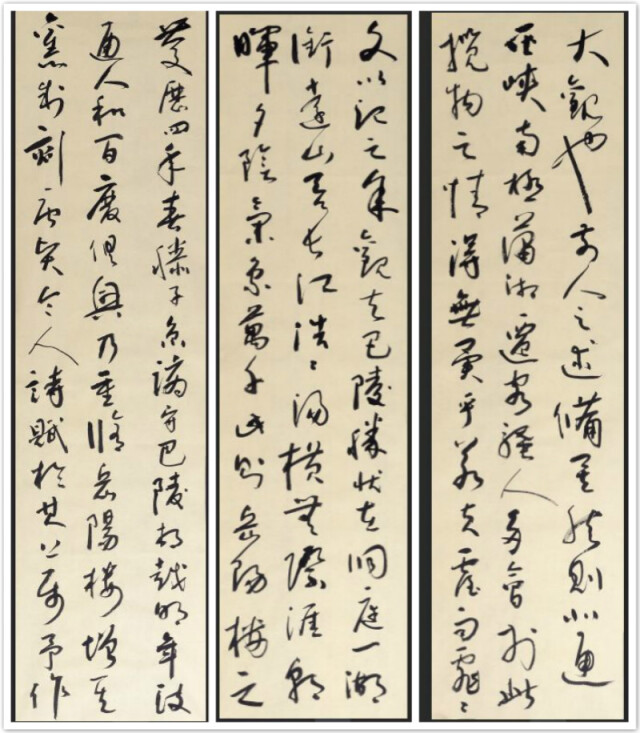 慶歷四年春滕子京謫守巴陵郡越明年政
通人和百廢俱興乃重脩岳陽樓增其
舊制刻唐賢今人詩賦於其上屬予作
文以記之余觀夫巴陵勝狀在洞庭一湖
銜遠山吞長江浩〻湯橫無際涯朝
暉夕陰氣象萬千此則岳陽樓之
大觀也前人之述備矣然則北通
巫峽南極瀟湘遷客騷人多會於此
攬物之情得無異乎若夫霪雨霏〻